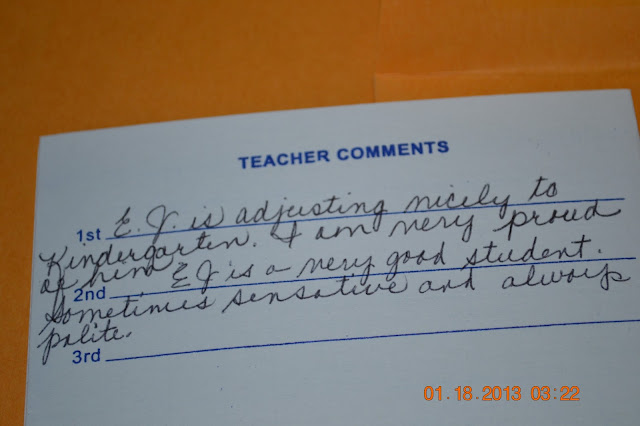 TEACHER COMMENTS
1st E. J. is adjusting nicely to
Kindergarten. I am very proud
of him
2nd EJ is a very good student.
Sometimes sensative and always
polite.
3rd
01.18.2013 03:22